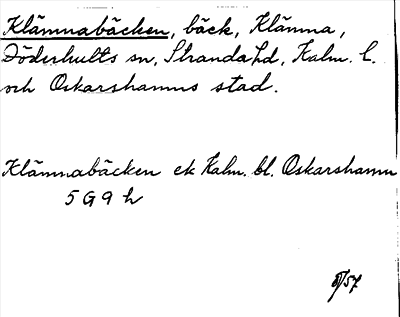 Klämnabäcken, bäck, Klämna,
Döderhults sn, Stranda hd, Kalm. l.
och Oskarshamns stad.
Klämnabäcken ek Kalm. bl. Oskarshamn
5 G 9 h
/57